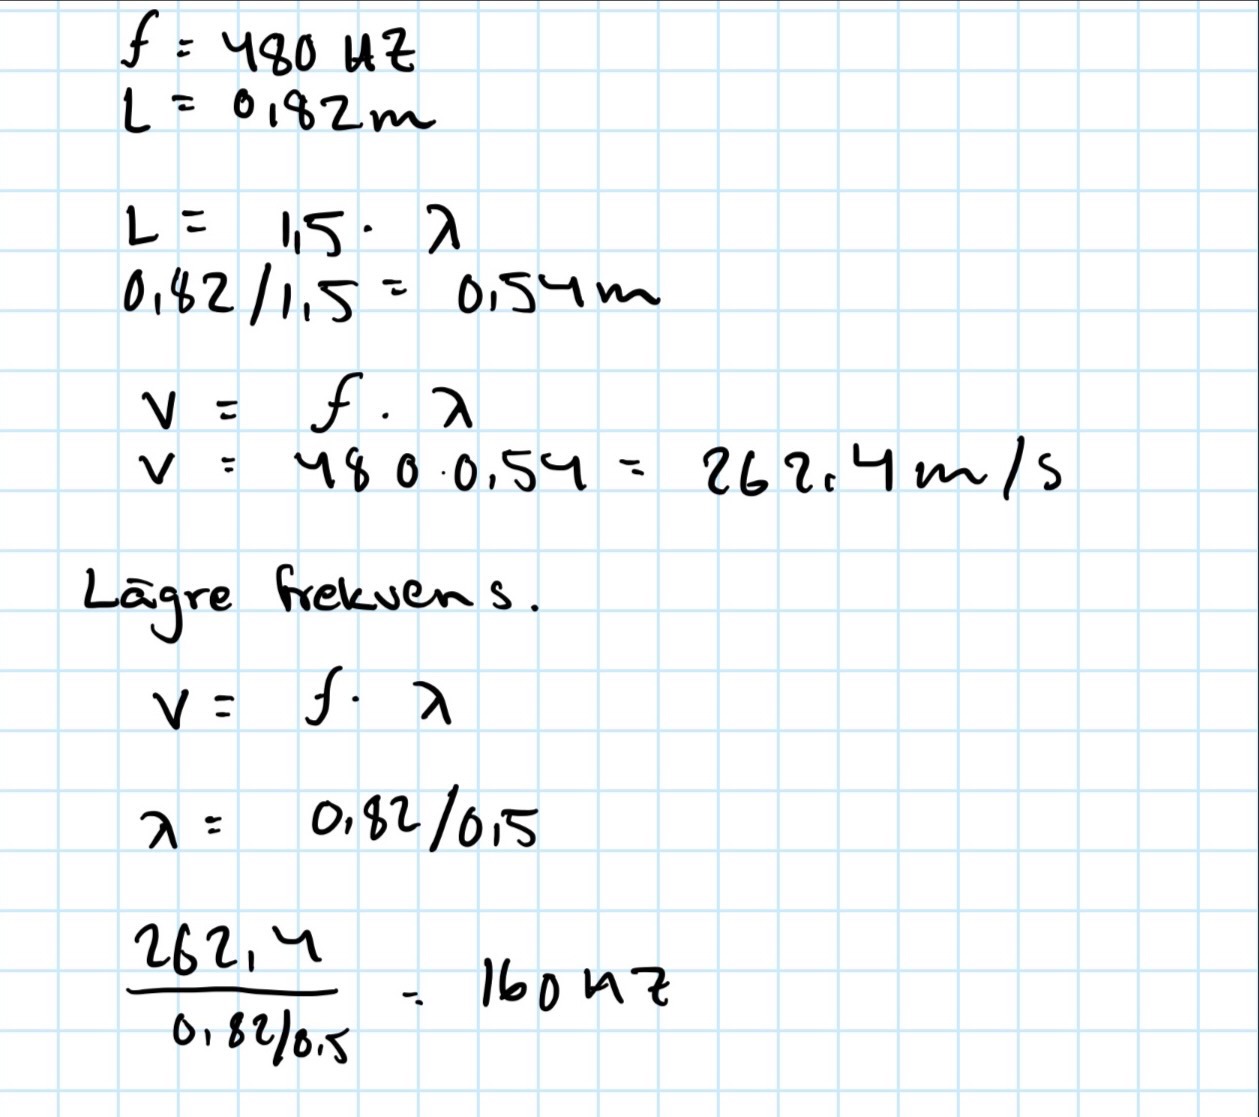 f = 480 HZ
L = 0,82m
L = 1,5 · λ
0,82/1,5 = 0,54m
V = f · λ
V = 480 · 0,54 = 262,4 m/s
Lägre frekvens.
V = f · λ
λ = 0,82/0,5
262,4
0,82/0,5 = 160 HZ